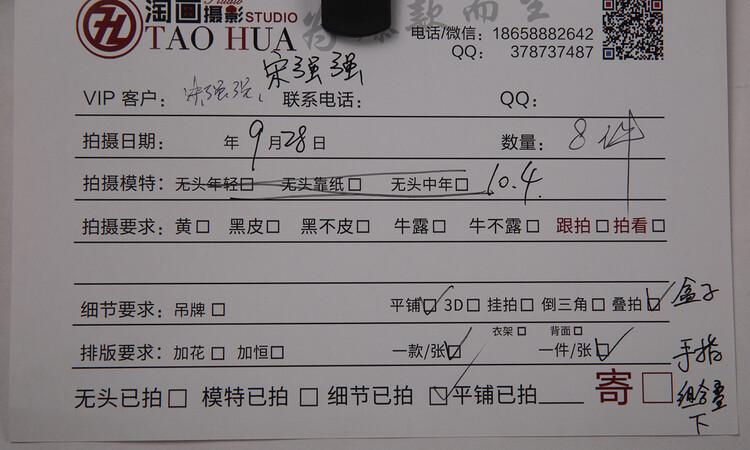 淘画摄影 Studio STUDIO
TAO HUA
为 款而生
电话/微信：18658882642
QQ：378737487
宋强强
VIP 客户：宋强强、 联系电话： QQ：
拍摄日期： 年 9月28日 数量：8件
拍摄模特：无头年轻□ 无头靠纸□ 无头中年□ 10.4.
拍摄要求：黄□ 黑皮□ 黑不皮□ 牛露□ 牛不露□ 跟拍□ 拍看□
细节要求：吊牌□ 平铺☑ 3D□ 挂拍□ 倒三角□ 叠拍☑ 盒子
衣架□ 背面□
排版要求：加花□ 加恒□ 一款/张☑ 一件/张☑ 手指
无头已拍□ 模特已拍□ 细节已拍□ ☑平铺已拍____ 寄□ 组合叠
下